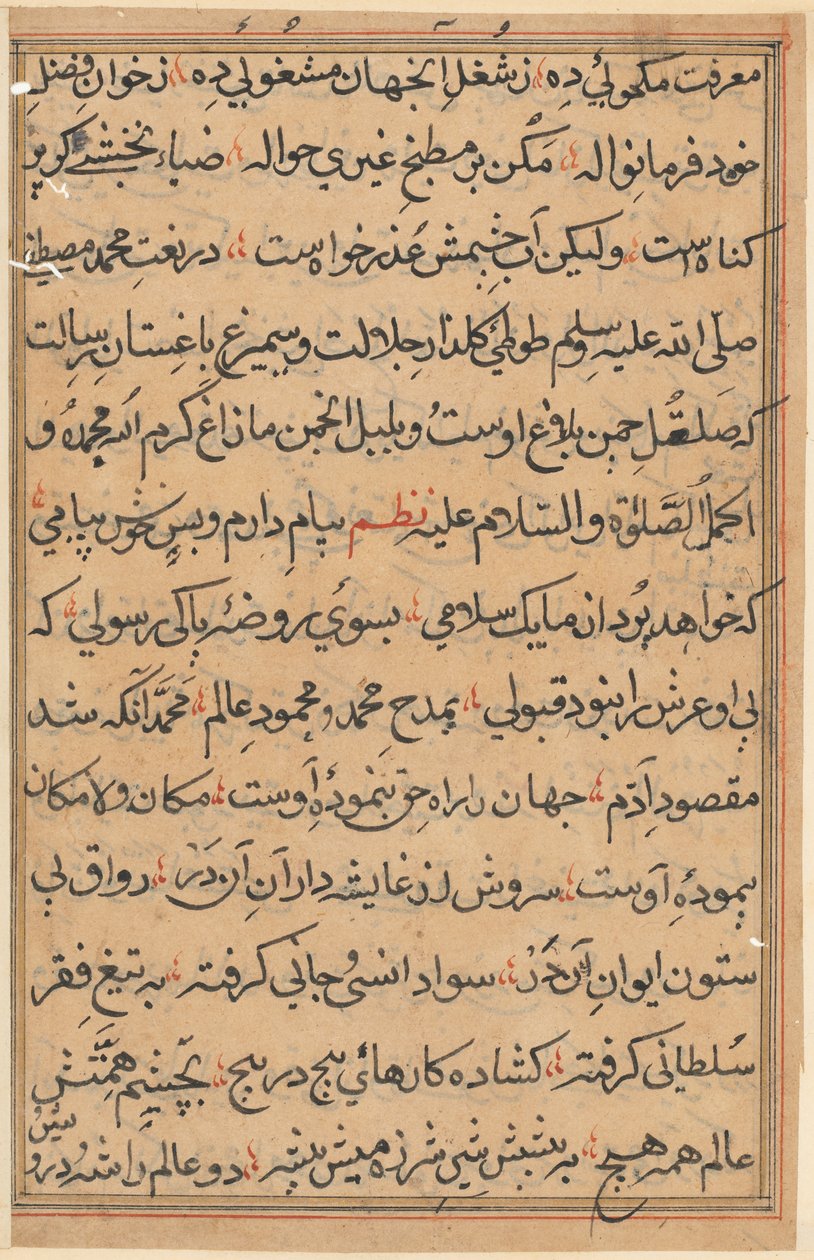 معرفت مکحولیٔ ده ؛ ز شغلِ آنجهان مشغولی ده ؛ ز خوانِ فضلِ
خود فرما نواله ؛ مکن بر مطبخِ غیری حواله ؛ ضیاء نخشبے کر پر
کناه است ؛ ولیکن آبِ چشمش عذر خواه ست ؛ در نعتِ محمد مصطفی
صلّی الله علیه وسلم طوطیٔ کلذارِ جلالت و سیمرغ باغستانِ رسالت
که صَلصُلِ چمن بلاغ اوست و بلبل انجمن ما زاغ کرم الله محمدهُ و
اکملُ الصَّلوٰة والسّلام علیه نظم پیامِ دارم و بس خوش پیامی ؛
که خواهد برُد از ما یک سلامی ؛ بسویٔ روضهٔ پاکی رسولی ؛ که
بی او عرش را بنود قبولی ؛ بمدحِ محمد و محمودِ عالم ؛ محمَّد آنکه شد
مقصودِ آدم ؛ جهان را راه حق بنمودهٔ اوست ؛ مکان و لامکان
پیمودهٔ اوست ؛ سروش از غایشه دارانِ آن دَرْ ؛ رواقِ بی
ستون ایوانِ آن دَرْ ؛ سواد انسی و جانی کرفته ؛ به تیغِ فقر
سُلطانی کرفته ؛ کشاده کارهایٔ پیج در پیج ؛ بچشمِ همّتش
عالم همه هیچ ؛ به پیشش شیرِ شرزه میش بیشه ؛ دو عالم را شده رو